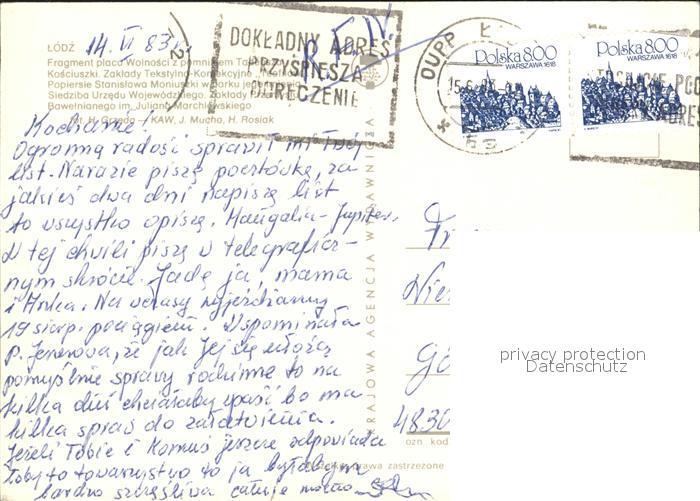 14. VI 83r.
ŁÓDŹ
Fragment placu Wolności z pomnikiem Tadeusza
Kościuszki. Zakłady Tekstylno-Konfekcyjne
Popiersie Stanisława Moniuszki w parku jego
Siedziba Urzędu Wojewódzkiego. Zakłady Przemysłu
Bawełnianego im. Juliana Marchlewskiego
KAW, J. Mucha, H. Rosiak
DOKŁADNY ADRES
PRZYSPIESZA
DORĘCZENIE
OUPP Ł
15.6.
Polska 8.00
WARSZAWA 1618
Polska 8.00
WARSZAWA 1618
ADRES
Kochanie!
Ogromną radość sprawił mi Twój
list. Narazie piszę pocztówkę, za
jakieś dwa dni napiszę list
to wszystko opiszę. Mangalia - Jupiter.
W tej chwili piszę w telegraficz-
nym skrócie. Jadę ja, mama
i Anka. Na wczasy wyjeżdżamy
19 sierp. pociągiem. Wspominała
p. że jak Jej się ułożą
pomyślnie sprawy rodzinne to na
kilka dni chciałaby wpaść bo ma
kilka spraw do załatwienia.
Jeżeli Tobie i Komuś jeszcze odpowiada
Toby to towarzystwo to ja byłabym
bardzo szczęśliwa całuję mocno
KRAJOWA AGENCJA WYDAWNICZA
Nie
Gö
4830
ozn. kod
Wszelkie prawa zastrzeżone
privacy protection
Datenschutz